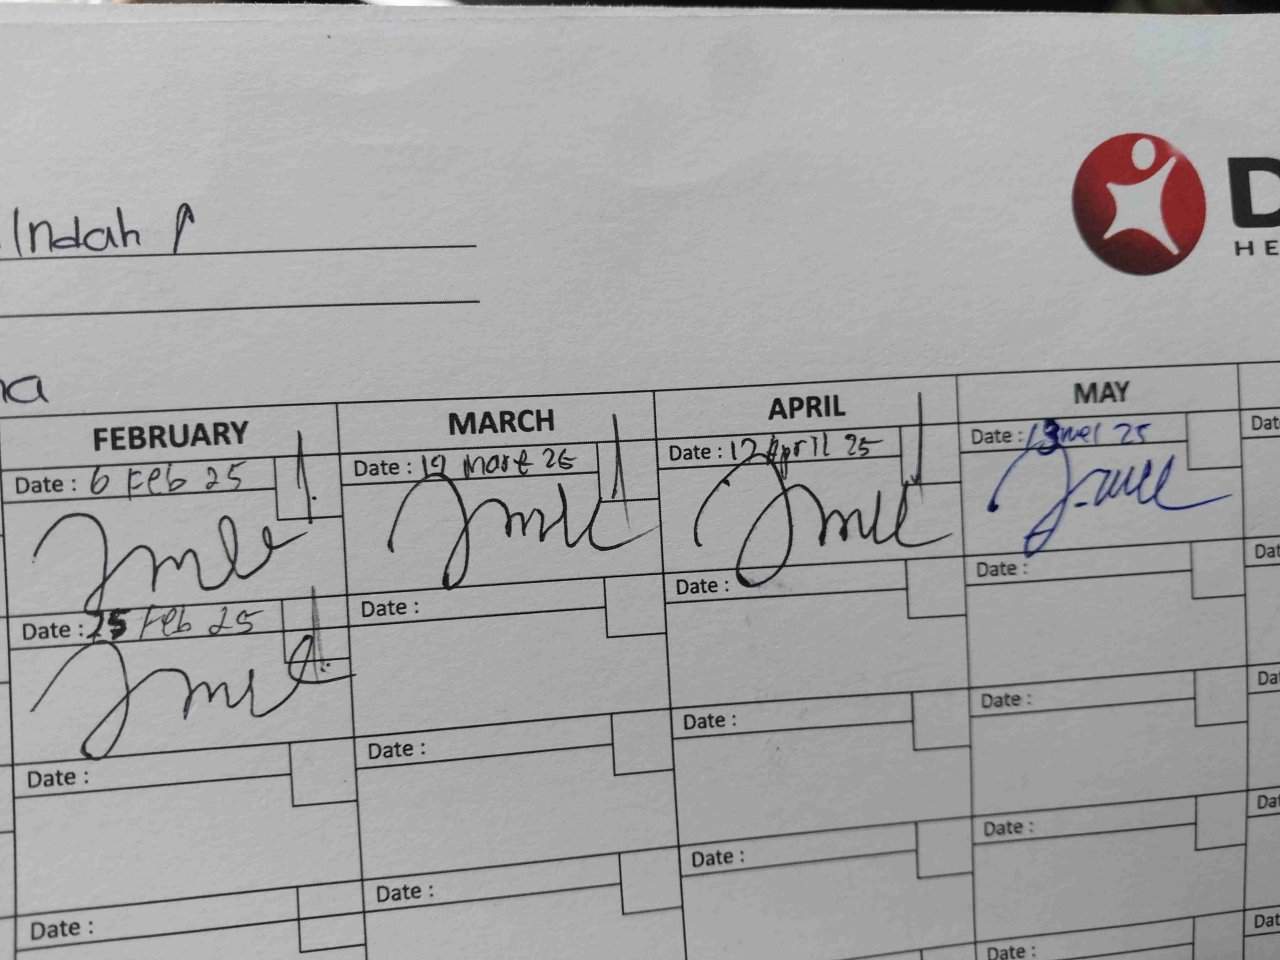 Indah P
D
HE
na
FEBRUARY MARCH APRIL MAY
Date : 6 Feb 25 Date : 19 Maret 25 Date : 17 April 25 Date : 13 mei 25 Dat
Date : 25 Feb 25 Date : Date : Date : Dat
Date : Date : Date : Date : Da
Date : Date : Date : Date : Da
Date : Dat